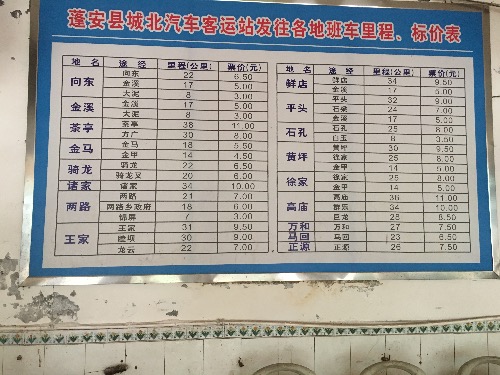 蓬安县城北汽车客运站发往各地班车里程、标价表
地名 途经 里程(公里) 票价(元)
向东 向东 22 6.50
金溪 17 5.00
大泥 8 3.00
金溪 金溪 17 5.00
大泥 8 3.00
茶亭 茶亭 38 11.00
方广 30 8.00
金马 金马 18 5.50
金甲 14 4.50
骑龙 骑龙 22 6.50
骑龙叉 20 6.00
诸家 诸家 34 10.00
两路 两路 21 7.00
两路乡政府 18 6.00
锦屏 7 3.00
王家 王家 31 9.50
睦坝 30 9.00
龙云 22 7.00
地名 途经 里程(公里) 票价(元)
鲜店 鲜店 34 9.50
金溪 17 5.00
平头 平头 32 9.00
石梁 24 7.00
金溪 17 5.00
石孔 石孔 25 8.00
白玉 8 3.50
黄坪 黄坪 30 9.50
徐家 25 8.00
金甲 14 5.00
徐家 徐家 25 8.00
金甲 14 5.00
高庙 高庙 36 11.00
群乐 34 10.00
巨龙 28 8.50
万和 万和 27 7.50
马回 马回 23 6.50
正源 正源 26 7.50